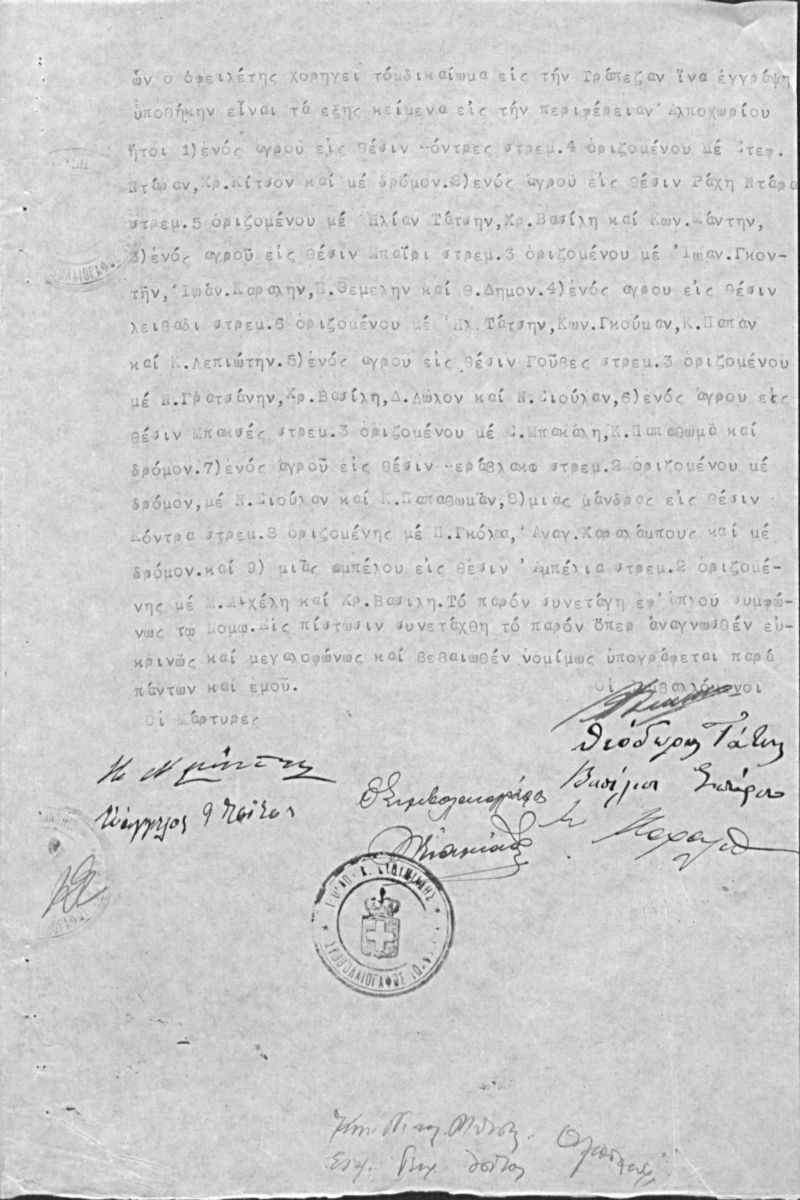 ὧν ο ὀφειλέτης χορηγεῖ τόμδικαίωμα εἰς τήν Τράπεζαν ἵνα ἐγγράψη
ὑποθήκην εἶναι τά εξης κείμενα εἰς τήν περιφέρειαν Ἀλποχωρίου
ἤτοι 1)ἑνός αγρού εἰς θέσιν στρεμ.4 ὁριζομένου μέ Στεφ.
Ντάραν,Χρ.Κίτσον καί μέ δρόμον.2)ἑνός αγροῦ εἰς θέσιν Ράχη Ντάρα
στρεμ.5 ὁριζομένου μέ Ἠλίαν Τάτσην,Χρ.Βασίλη καί Κων.Μάντην,
3)ἑνός αγροῦ εἰς θέσιν Μπαΐρι στρεμ.3 ὁριζομένου μέ Ἰωαν.Γκον-
τῆν,Ἰωάν.Καραλην,Π.Θεμελην καί Θ.Δημον.4)ἑνός αγρου εἰς θέσιν
λειβαδι στρεμ.6 ὁριζομένου μέ Ἠλ.Τάτσην,Κων.Γκούμαν,Κ.Παπᾶν
καί Κ.Λεπιώτην.5)ἑνός αγρου εἰς θέσιν Γοῦβες στρεμ.3 ὁριζομένου
μέ Ν.Γρατσάνην,Χρ.Βασίλη,Δ.Λῶλον καί Ν.Σιούλαν,6)ἑνός ἀγρου εἰς
θέσιν Μπακσές στρεμ.3 ὁριζομένου μέ Σ.Μπακάλη,Κ.Παπαθωμᾶ καί
δρόμον.7)ἑνός ἀγροῦ εἰς θέσιν στρεμ.2 ὁριζομένου μέ
δρόμον,μέ Ν.Σιούλαν καί Κ.Παπαθωμᾶν,8)μιας μάνδρας εἰς θέσιν
Κόντρα στρεμ.8 ὁριζομένης μέ Π.Γκόλια,Ἀναγ.Χαραλάμπους καί μέ
δρόμον.καί 9) μιᾶς αμπέλου εἰς θέσιν Ἀμπέλια στρεμ.2 ὁριζομέ-
νης μέ Μ.Μιχέλη καί Χρ.Βασιλη.Τό παρόν συνετάγη ἐφ'ἁπλού συμφώ-
νως τω Νομω.Εἰς πίστωσιν συνετάχθη τό παρόν ὅπερ ἀναγνωσθέν εὐ-
κρινώς καί μεγαλοφώνως καί βεβαιωθέν νομίμως ὑπογράφεται παρά
πάντων και εμοῦ. Οἱ Συμβαλλόμενοι
Οἱ Μάρτυρες
Θεόδωρος Τάτσης
Ὁ Συμβολαιογράφος
ΣΥΜΒΟΛΑΙΟΓΑΦΟΣ